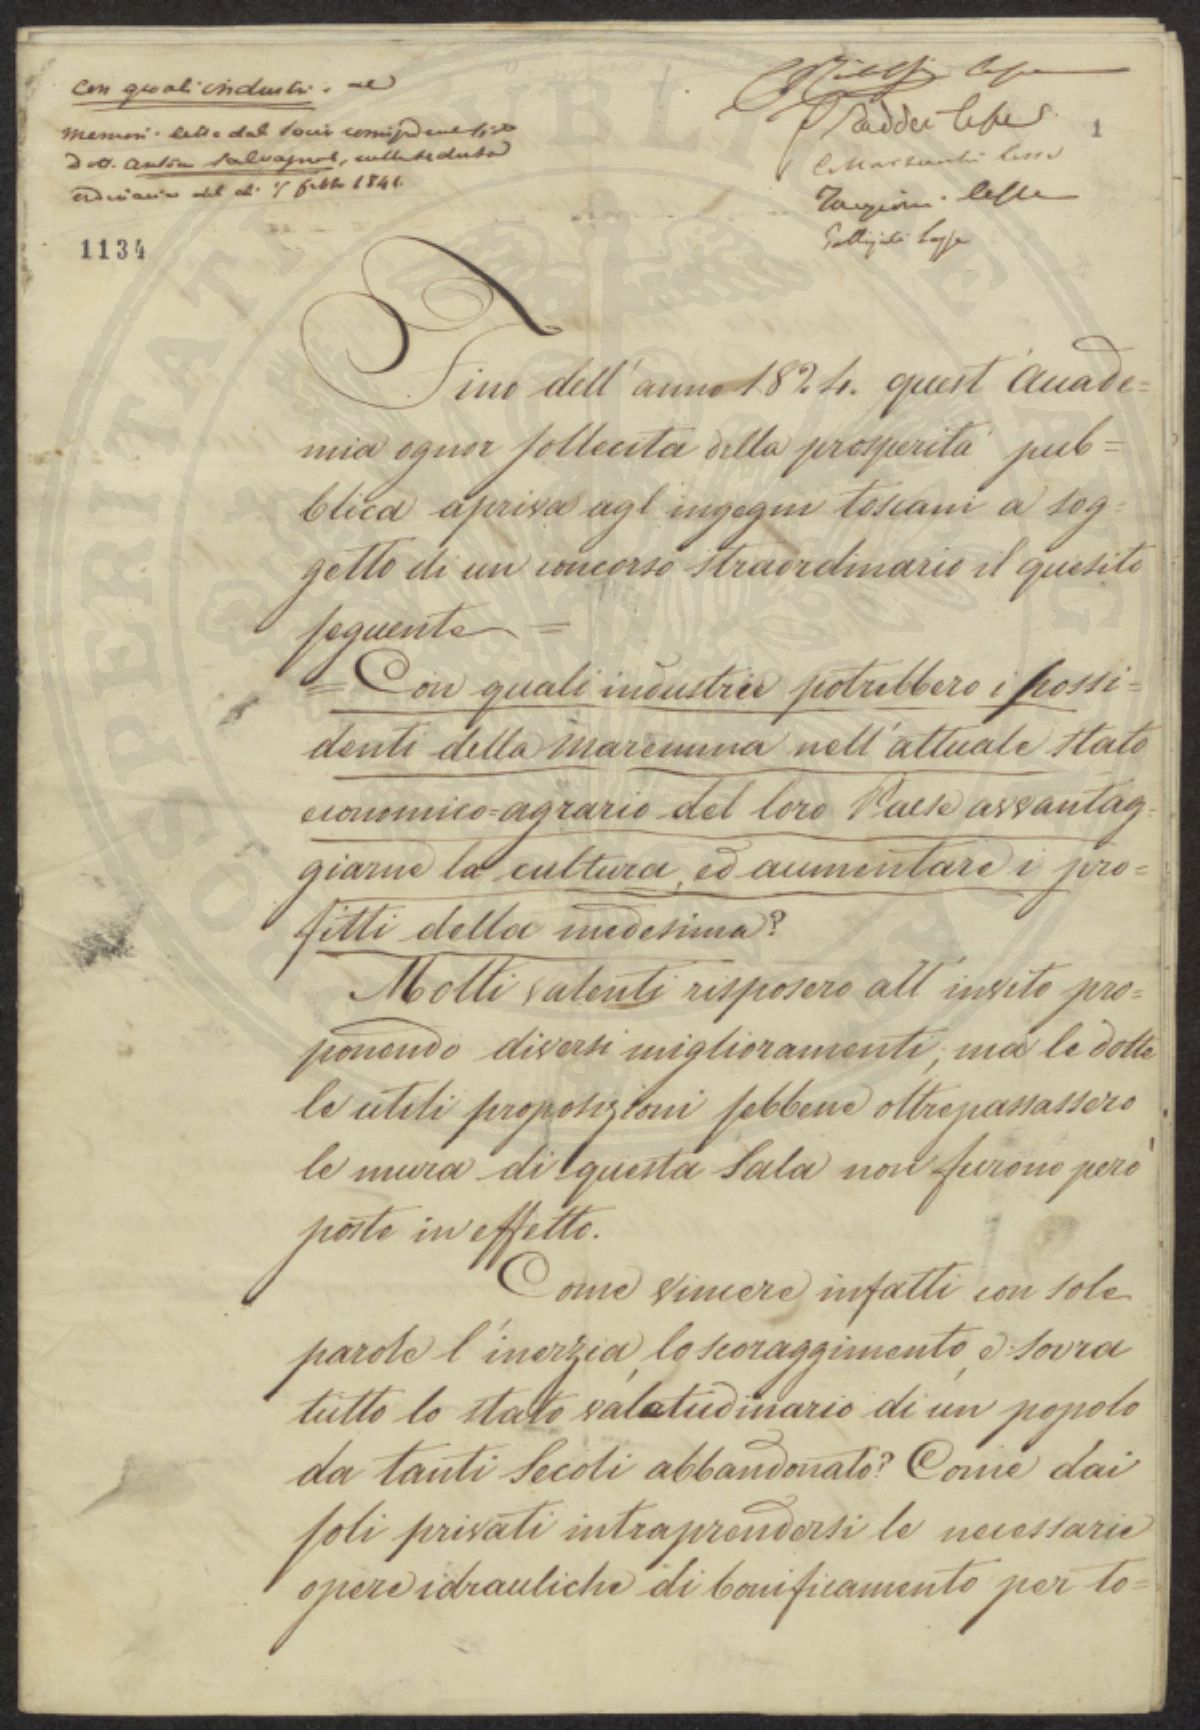 Con quali industrie. ~
Memoria letta dal Socio corrispondente Sig.
Dott. Antonio Salvagnoli, nella seduta
ordinaria del dì 7 febb. 1841.
1134
lesse
Taddei lesse
1
C. Martinelli lesse
Targioni. lesse
lesse
Fino dell'anno 1824. quest'Accade=
mia ognor sollecita della prosperità pub=
blica apriva agl'ingegni toscani a sog=
getto di un concorso straordinario il quesito
seguente =
= Con quali industrie potrebbero i possi=
denti della Maremma nell'attuale stato
economico=agrario del loro Paese avvantag=
giarne la cultura, ed aumentare i pro=
fitti della medesima?
Molti valenti risposero all'invito pro=
ponendo diversi miglioramenti; ma le dotte
le utili proposizioni sebbene oltrepassassero
le mura di questa Sala non furono però
poste in effetto.
Come vincere infatti con sole
parole l'inerzia, lo scoraggimento, e sovra
tutto lo stato valetudinario di un popolo
da tanti Secoli abbandonato? Come dai
soli privati intraprendersi le necessarie
opere idrauliche di bonificamento per to=